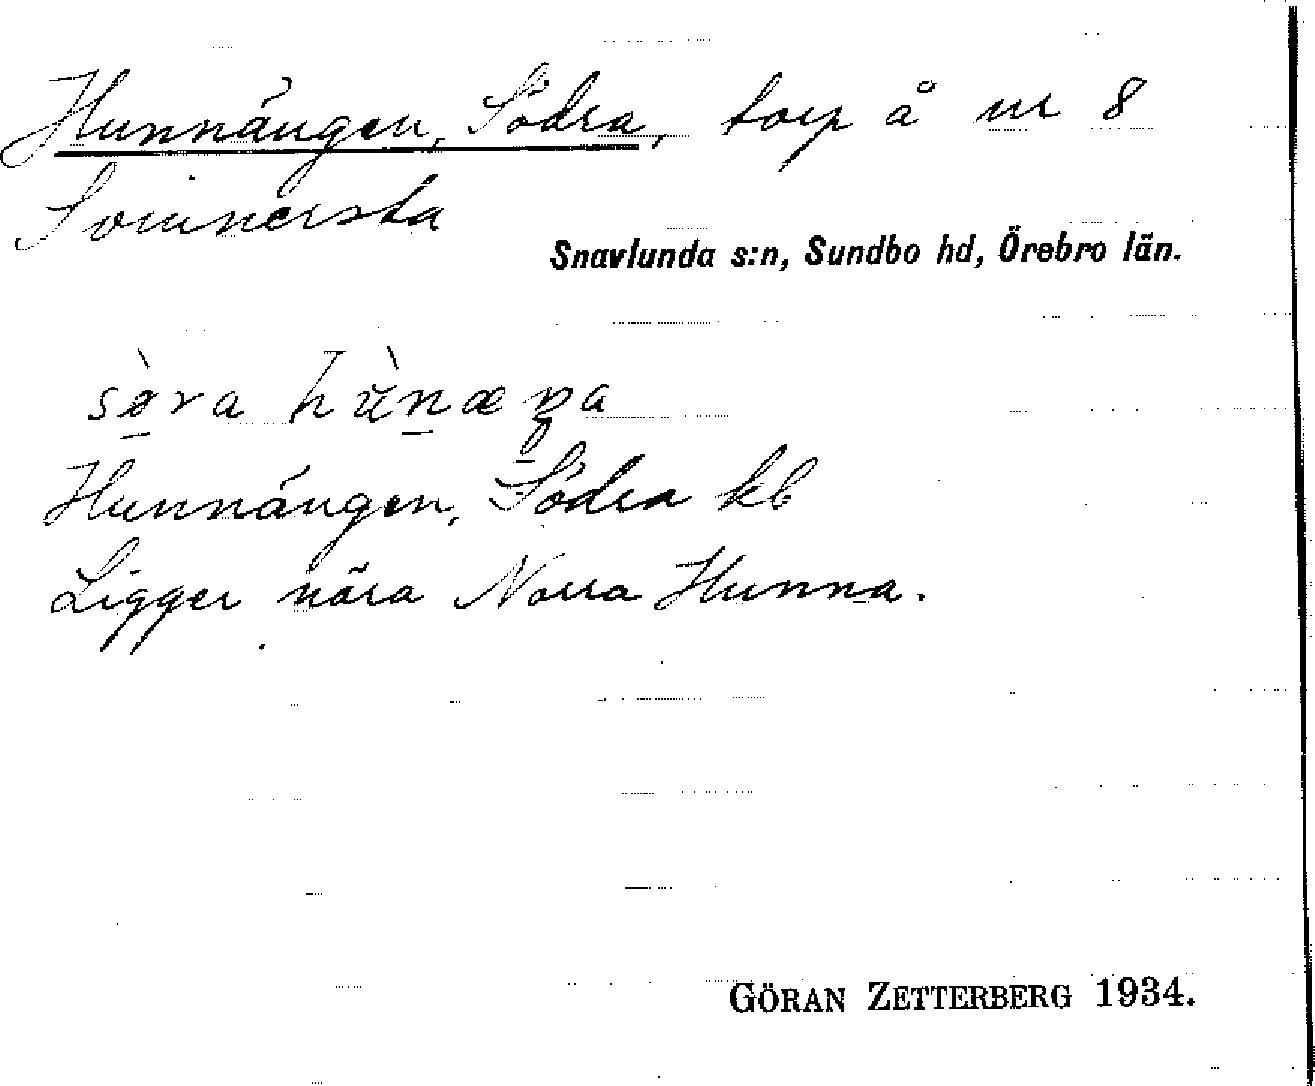 Hunnängen, Södra, torp å nr 8
Svinnersta
Snavlunda s:n, Sundbo hd, Örebro län.
Hunnängen, Södra kb
Ligger nära Norra Hunna.
GÖRAN ZETTERBERG 1934.